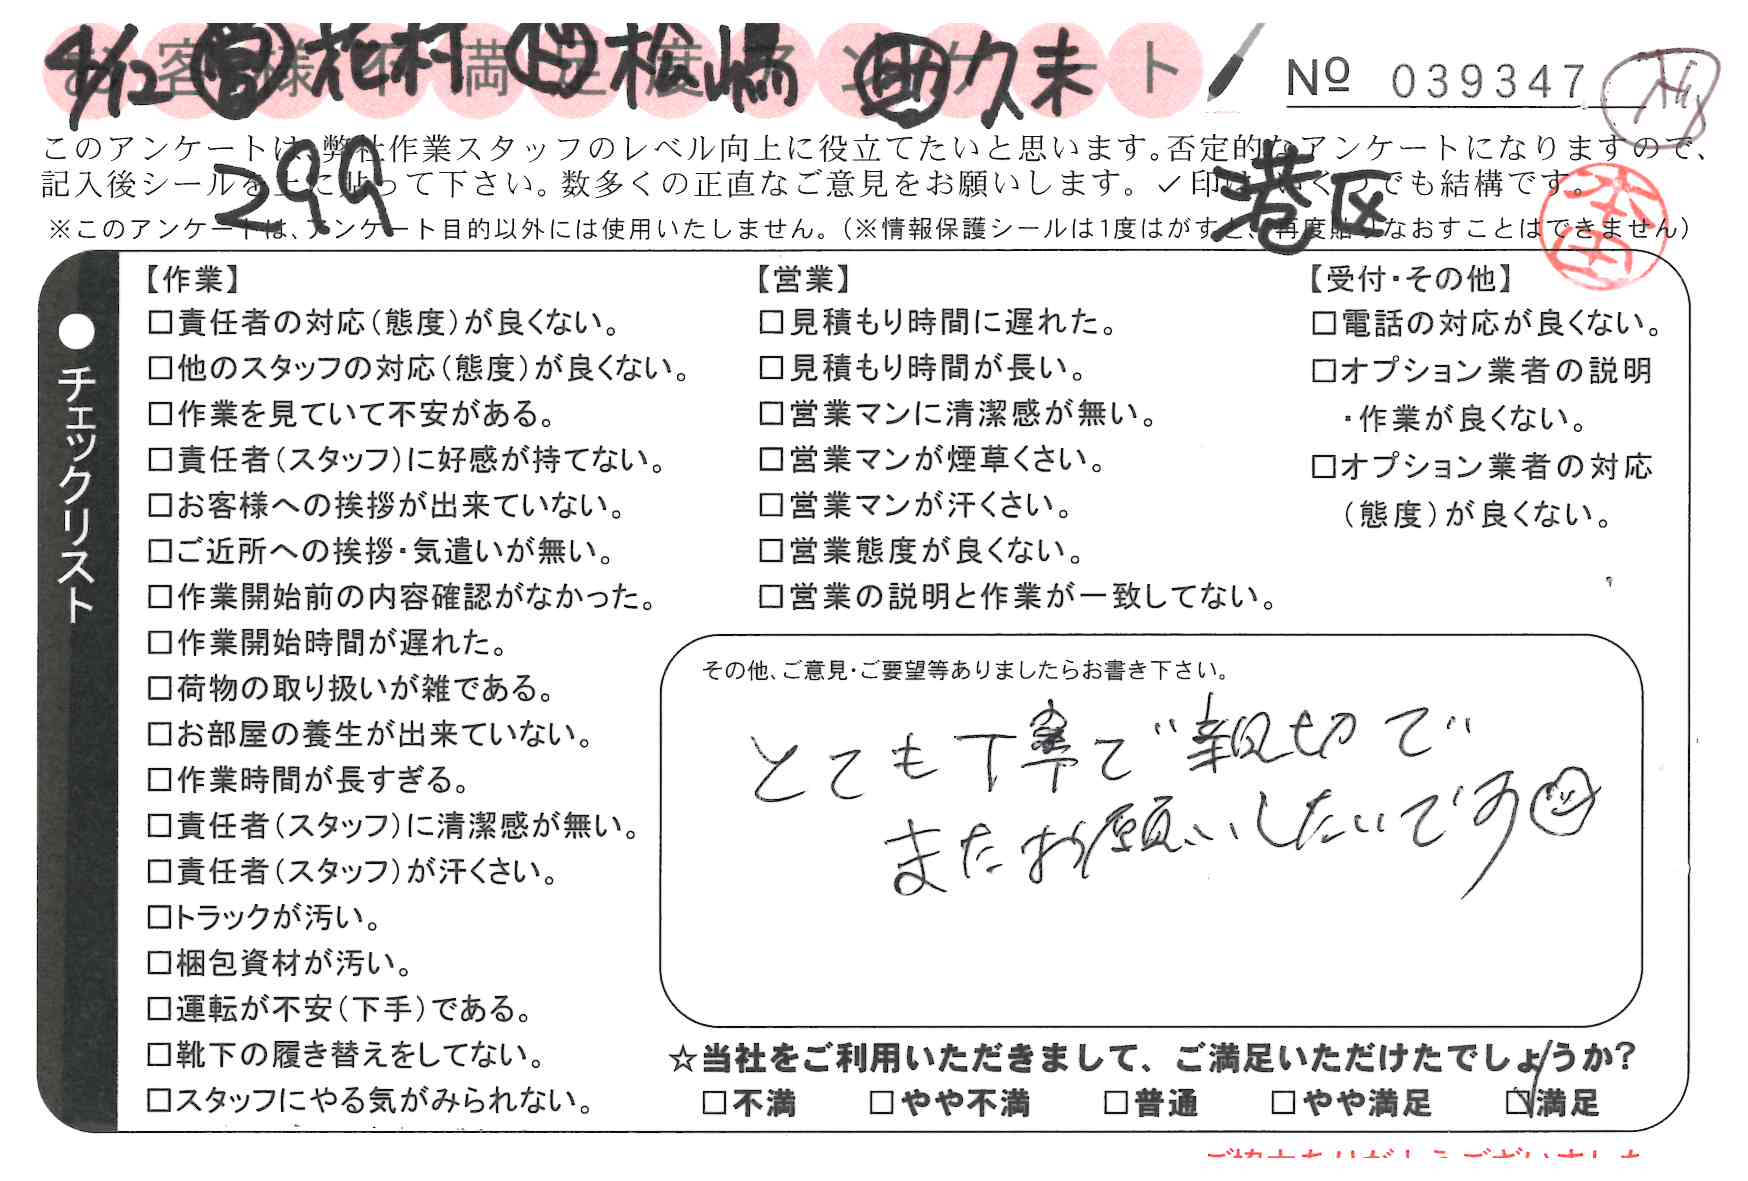 お客様不満足度アンケート
4/12 営 花村 ド 松嶋 助 久末
Nº 039347
このアンケートは、弊社作業スタッフのレベル向上に役立てたいと思います。否定的なアンケートになりますので、
299
港区
記入後シールを上に貼って下さい。数多くの正直なご意見をお願いします。✓印はいくつでも結構です。
※このアンケートは、アンケート目的以外には使用いたしません。(※情報保護シールは1度はがすと、再度貼りなおすことはできません)
●チェックリスト
【作業】
□責任者の対応(態度)が良くない。
□他のスタッフの対応(態度)が良くない。
□作業を見ていて不安がある。
□責任者(スタッフ)に好感が持てない。
□お客様への挨拶が出来ていない。
□ご近所への挨拶・気遣いが無い。
□作業開始前の内容確認がなかった。
□作業開始時間が遅れた。
□荷物の取り扱いが雑である。
□お部屋の養生が出来ていない。
□作業時間が長すぎる。
□責任者(スタッフ)に清潔感が無い。
□責任者(スタッフ)が汗くさい。
□トラックが汚い。
□梱包資材が汚い。
□運転が不安(下手)である。
□靴下の履き替えをしてない。
□スタッフにやる気がみられない。
【営業】
□見積もり時間に遅れた。
□見積もり時間が長い。
□営業マンに清潔感が無い。
□営業マンが煙草くさい。
□営業マンが汗くさい。
□営業態度が良くない。
□営業の説明と作業が一致してない。
【受付・その他】
□電話の対応が良くない。
□オプション業者の説明
・作業が良くない。
□オプション業者の対応
(態度)が良くない。
その他、ご意見・ご要望等ありましたらお書き下さい。
とても丁寧で親切で
またお願いしたいです
☆当社をご利用いただきまして、ご満足いただけたでしょうか?
□不満 □やや不満 □普通 □やや満足 ☑満足
ご協力ありがとうございました